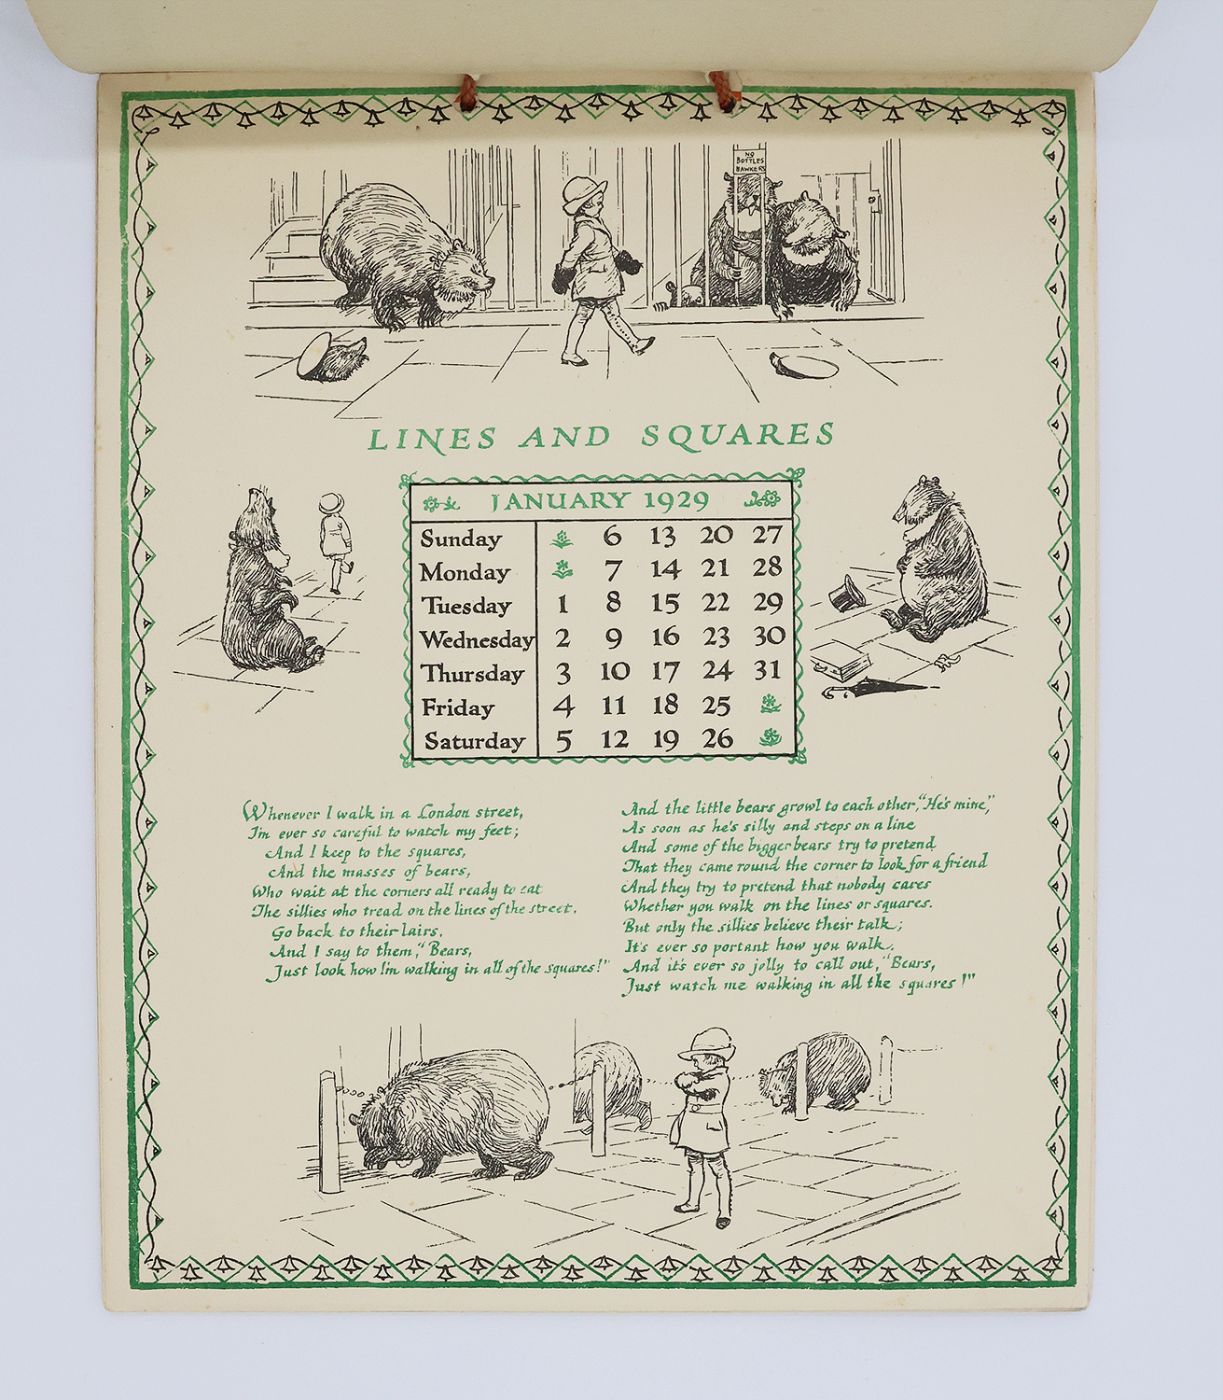 NO
BOTTLES
HAWKERS
LINES AND SQUARES
JANUARY 1929
Sunday 6 13 20 27
Monday 7 14 21 28
Tuesday 1 8 15 22 29
Wednesday 2 9 16 23 30
Thursday 3 10 17 24 31
Friday 4 11 18 25
Saturday 5 12 19 26
Whenever I walk in a London street,
I'm ever so careful to watch my feet;
And I keep to the squares,
And the masses of bears,
Who wait at the corners all ready to eat
The sillies who tread on the lines of the street.
Go back to their lairs,
And I say to them, "Bears,
Just look how I'm walking in all of the squares!"
And the little bears growl to each other, "He's mine,"
As soon as he's silly and steps on a line
And some of the bigger bears try to pretend
That they came round the corner to look for a friend
And they try to pretend that nobody cares
Whether you walk on the lines or squares.
But only the sillies believe their talk;
It's ever so portant how you walk.
And it's ever so jolly to call out, "Bears,
Just watch me walking in all the squares!"